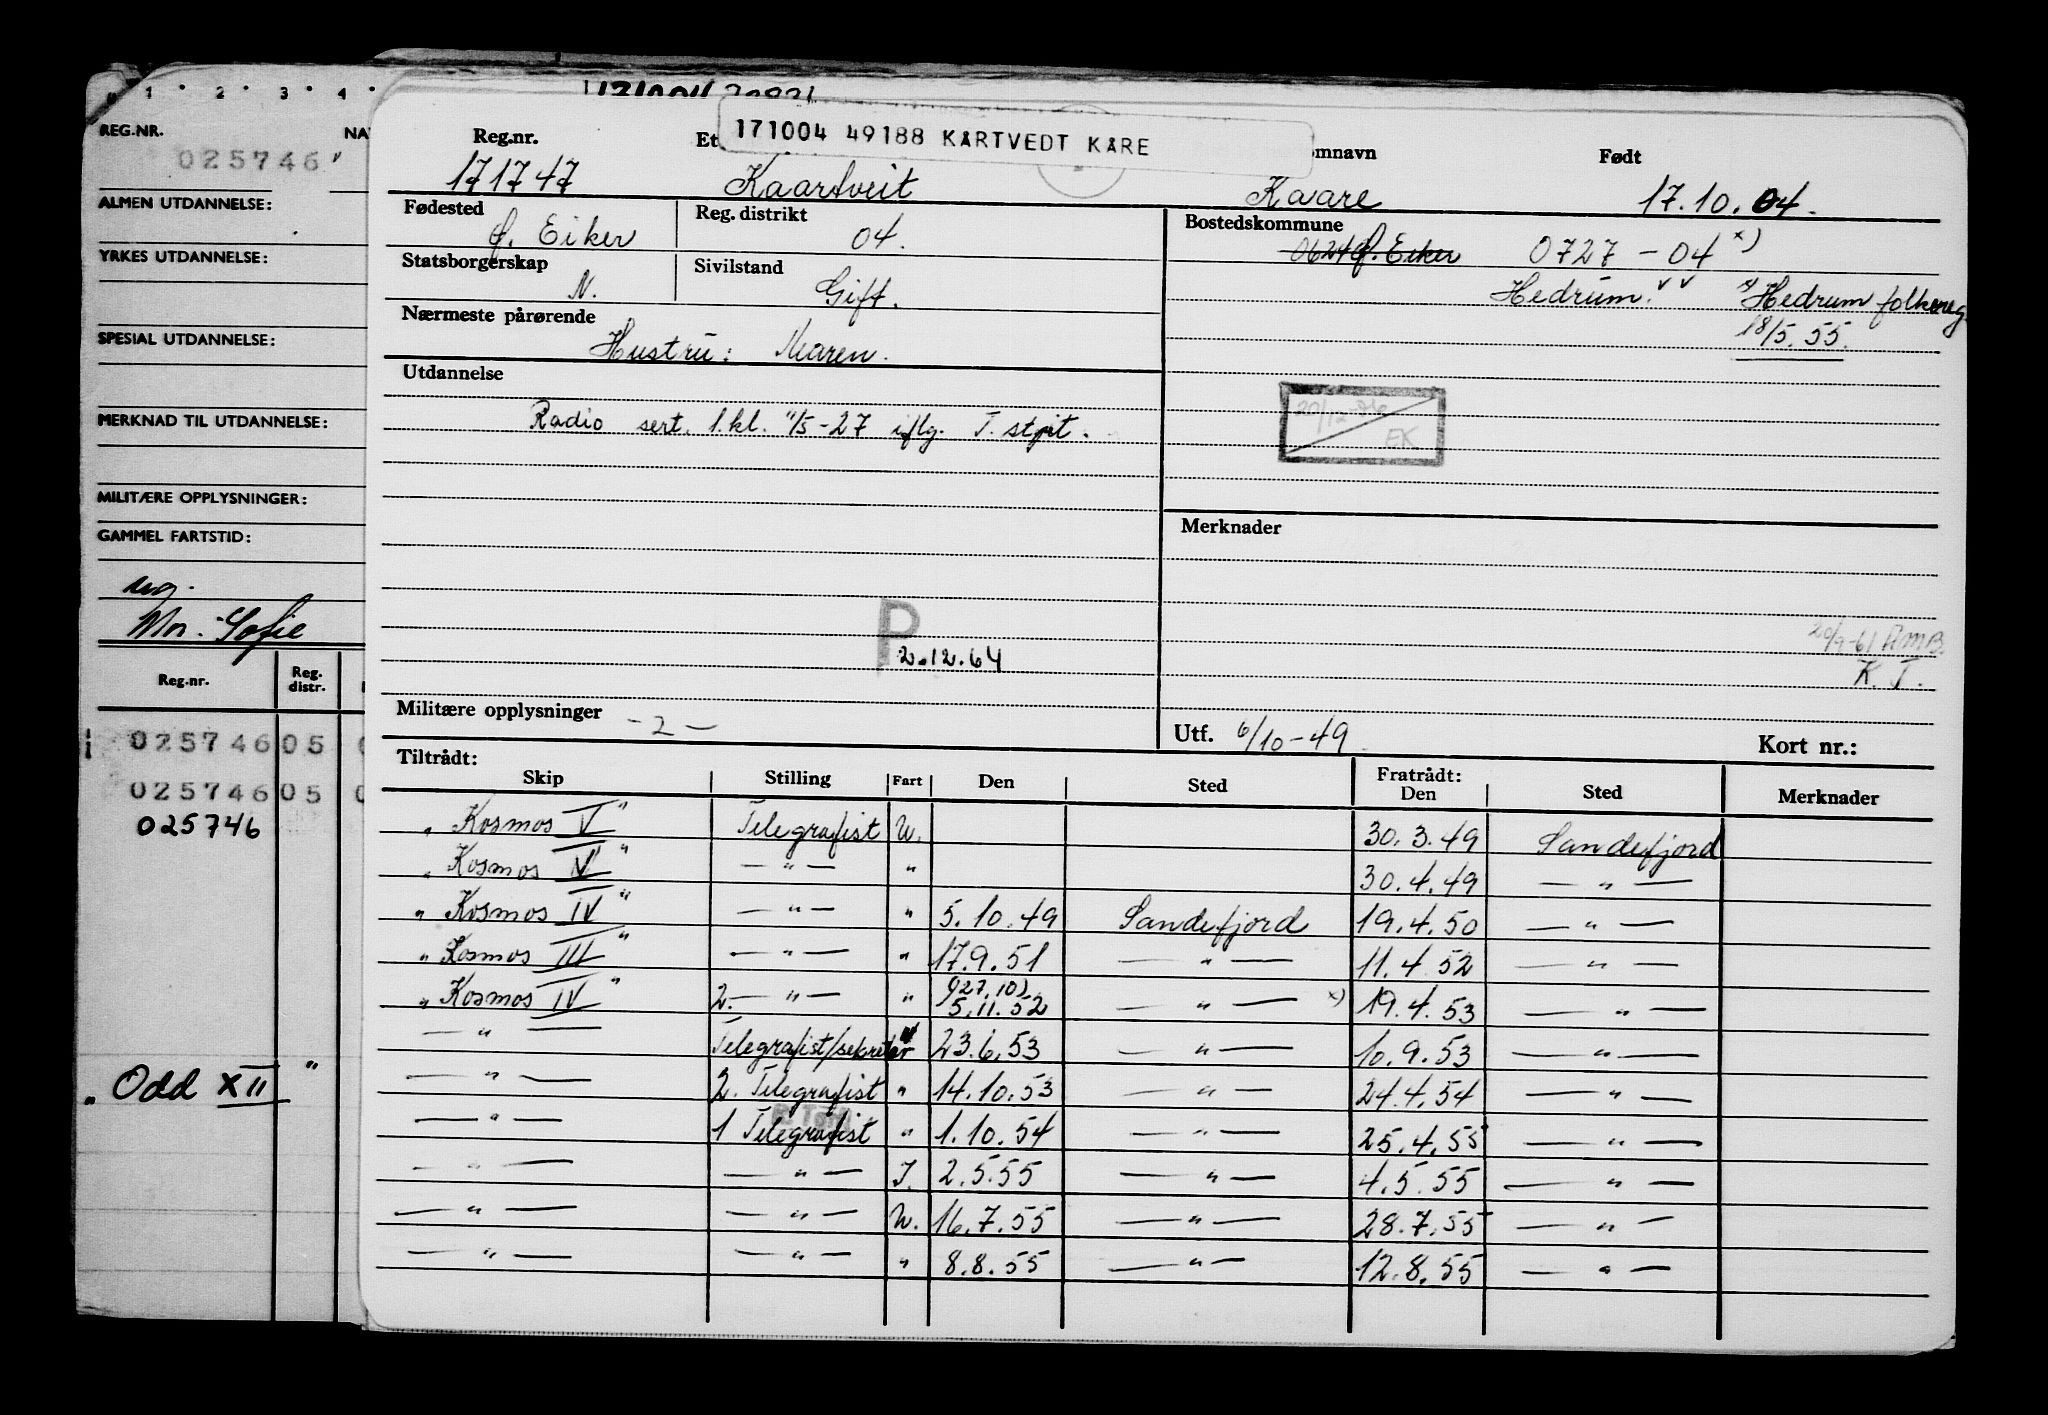 1 2 3 4
REG.NR. NA
025746
ALMEN UTDANNELSE:
YRKES UTDANNELSE:
SPESIAL UTDANNELSE:
MERKNAD TIL UTDANNELSE:
MILITÆRE OPPLYSNINGER:
GAMMEL FARTSTID:
Sofie
Reg.nr. Reg. distr.
025746 05 0
025746 05 0
025746
„ Odd XII "
171004 49188 KARTVEDT KÅRE
Reg.nr. Et omnavn Født
171747 Kaartveit Kaare 17.10.04.
Fødested Reg. distrikt Bostedskommune
Ø. Eiker 04. 0624 Ø. Eiker 0727 - 04 x)
Statsborgerskap Sivilstand
N. Gift. Hedrum. x) Hedrum folkereg.
Nærmeste pårørende 18/5.55.
Hustru: Maren.
Utdannelse
Radio sert. 1.kl. 11/5-27 iflg. T. styit.
EK
Merknader
P
2.12.64
20/9-61 AMB.
K. J.
Militære opplysninger - 2 - Utf. 6/10-49 Kort nr.:
Tiltrådt: Fratrådt:
Skip Stilling Fart Den Sted Den Sted Merknader
„ Kosmos V " Telegrafist W. 30.3.49 Sandefjord
„ Kosmos V " — " — " 30.4.49 — " —
„ Kosmos IV " — " — " 5.10.49 Sandefjord 19.4.50 — " —
„ Kosmos III " — " — " 17.9.51 — " — 11.4.52 — " —
„ Kosmos IV " 2. — " — " (27.10) 5.11.52 — " — x) 19.4.53 — " —
— " — Telegrafist/sekretær 23.6.53 — " — 10.9.53 — " —
— " — 2. Telegrafist " 14.10.53 — " — 24.4.54 — " —
— " — 1 Telegrafist " 1.10.54 — " — 25.4.55 — " —
— " — — " — I. 2.5.55 — " — 4.5.55 — " —
— " — — " — W. 16.7.55 — " — 28.7.55 — " —
— " — — " — " 8.8.55 — " — 12.8.55 — " —